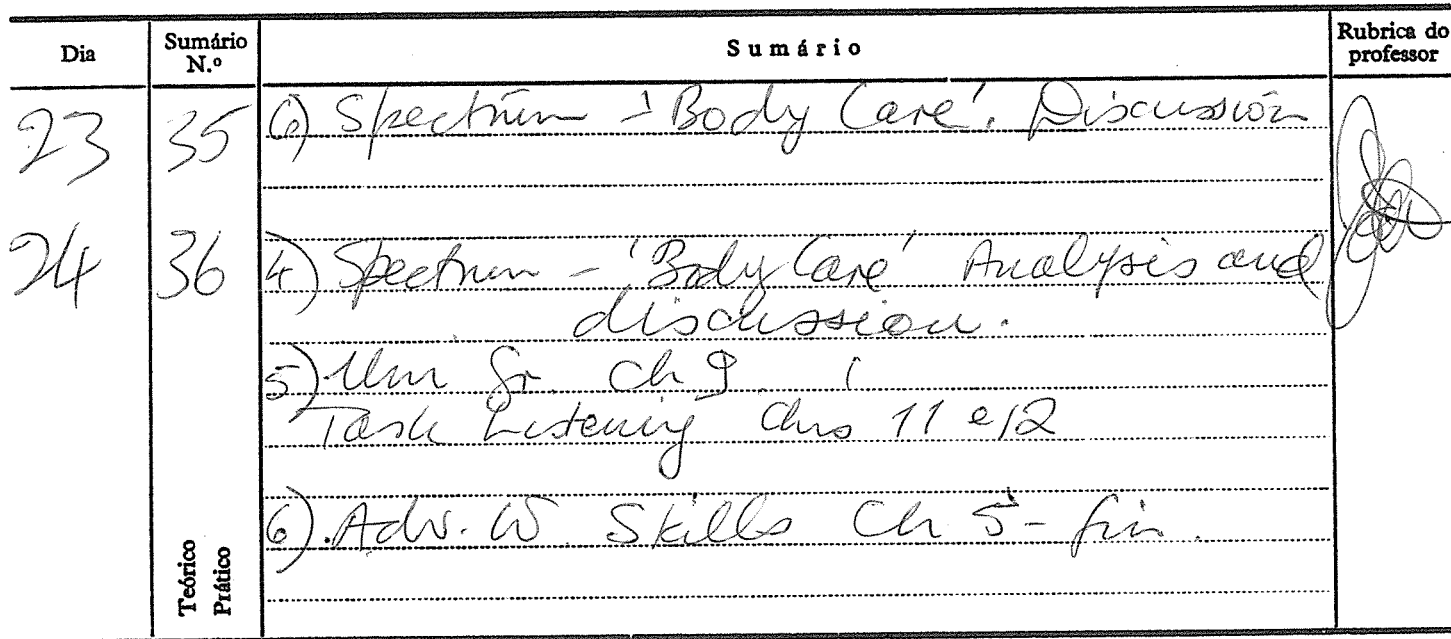 Dia Sumário N.º Sumário Rubrica do professor
23 35 6) Spectrum - 'Body Care'. Discussion
24 36 4) Spectrum - 'Body Care' Analysis and
discussion.
5) Gr. Ch 9.
Task Listening Chs 11 e 12
6). Adv. W. Skills Ch 5 - fin.
Teórico
Prático